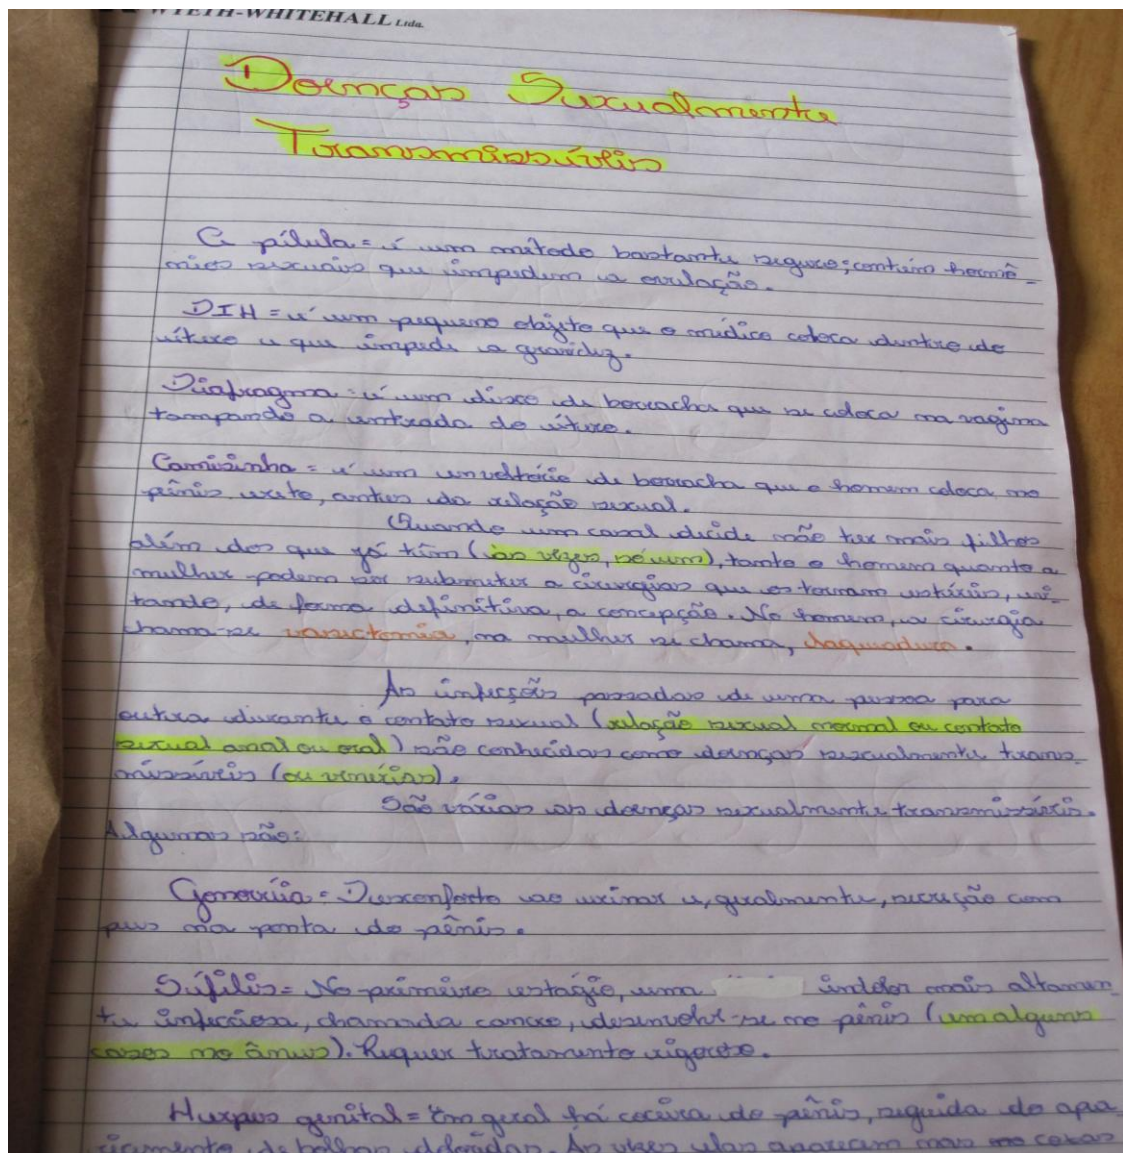 WYETH-WHITEHALL Ltda.
Doenças Sexualmente
Transmissíveis
A pílula = é um método bastante seguro; contém hormô-
nios sexuais que impedem a ovulação.
DIH = é um pequeno objeto que o médico coloca dentro do
útero e que impede a gravidez.
Diafragma = é um disco de borracha que se coloca na vagina
tampando a entrada do útero.
Camisinha = é um envoltório de borracha que o homem coloca no
pênis ereto, antes da relação sexual.
Quando um casal decide não ter mais filhos
além dos que já têm (às vezes, só um), tanto o homem quanto a
mulher podem ser submeter a cirurgias que os tornam estéreis, evi-
tando, de forma definitiva, a concepção. No homem, a cirurgia
chama-se vasectomia, na mulher se chama, laqueadura.
As infecções passadas de uma pessoa para
outra durante o contato sexual (relação sexual normal ou contato
sexual anal ou oral) são conhecidas como doenças sexualmente trans-
missíveis (ou venérias).
São várias as doenças sexualmente transmissíveis.
Algumas são:
Gonorréia = Desconforto ao urinar e, geralmente, secreção com
pus na ponta do pênis.
Sífilis = No primeiro estágio, uma indolor mais altamen-
te infecciosa, chamada cancro, desenvolve-se no pênis (em alguns
casos no ânus). Requer tratamento rigoroso.
Herpes genital = Em geral há coceira do pênis, seguida do apa-
recimento de bolhas doloridas. Às vezes elas aparecem mas no coxas